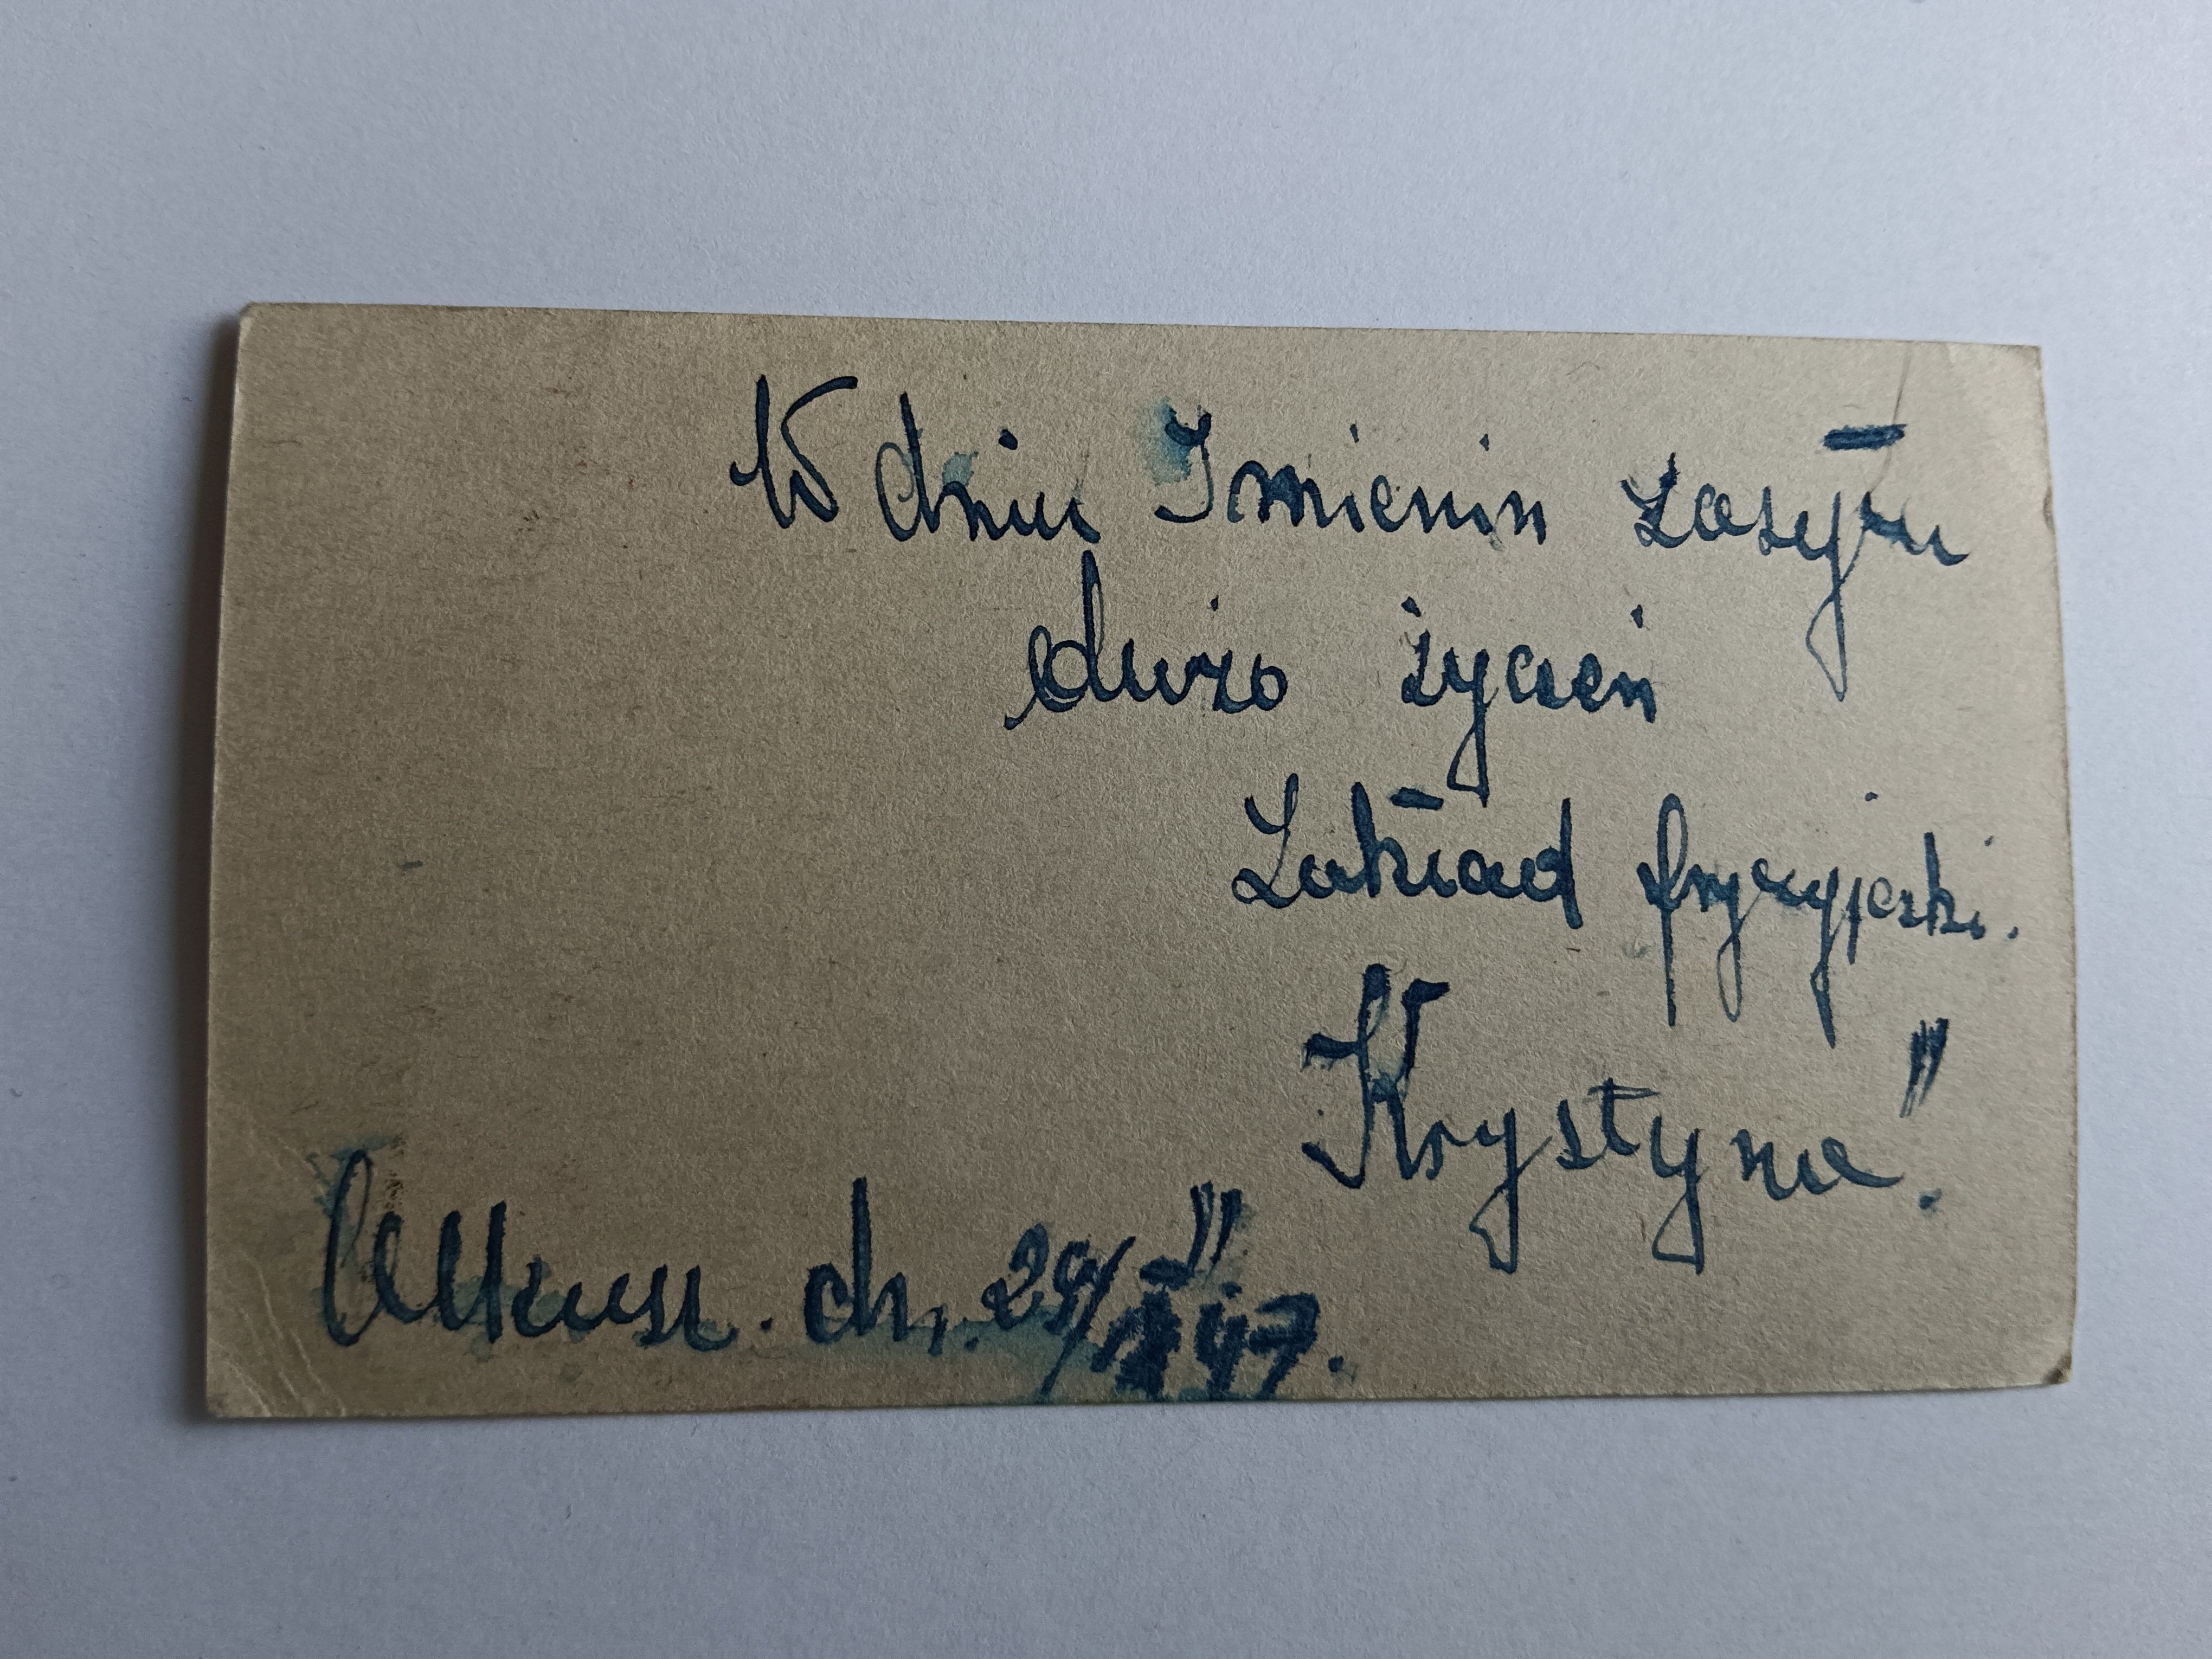 W dniu Imienin zasyła
dużo życzeń
Zakład fryzyjerski.
"Krystyna".
Olkusz. dn. 29/ 47.